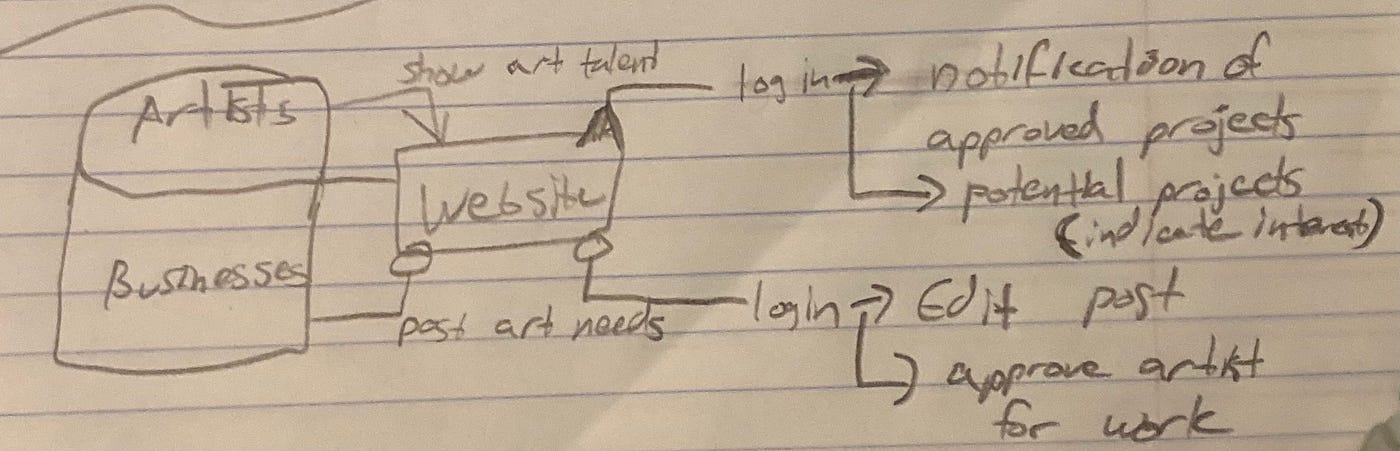 show art talent
Artists
login → notification of
approved projects
→ potential projects
(indicate interest)
Website
Businesses
post art needs
login → Edit post
→ approve artist
for work